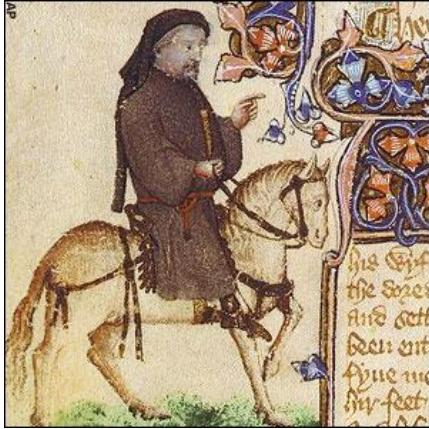 AP
his Wyf
the dore
and sett
been ent
fyue me
hir feet